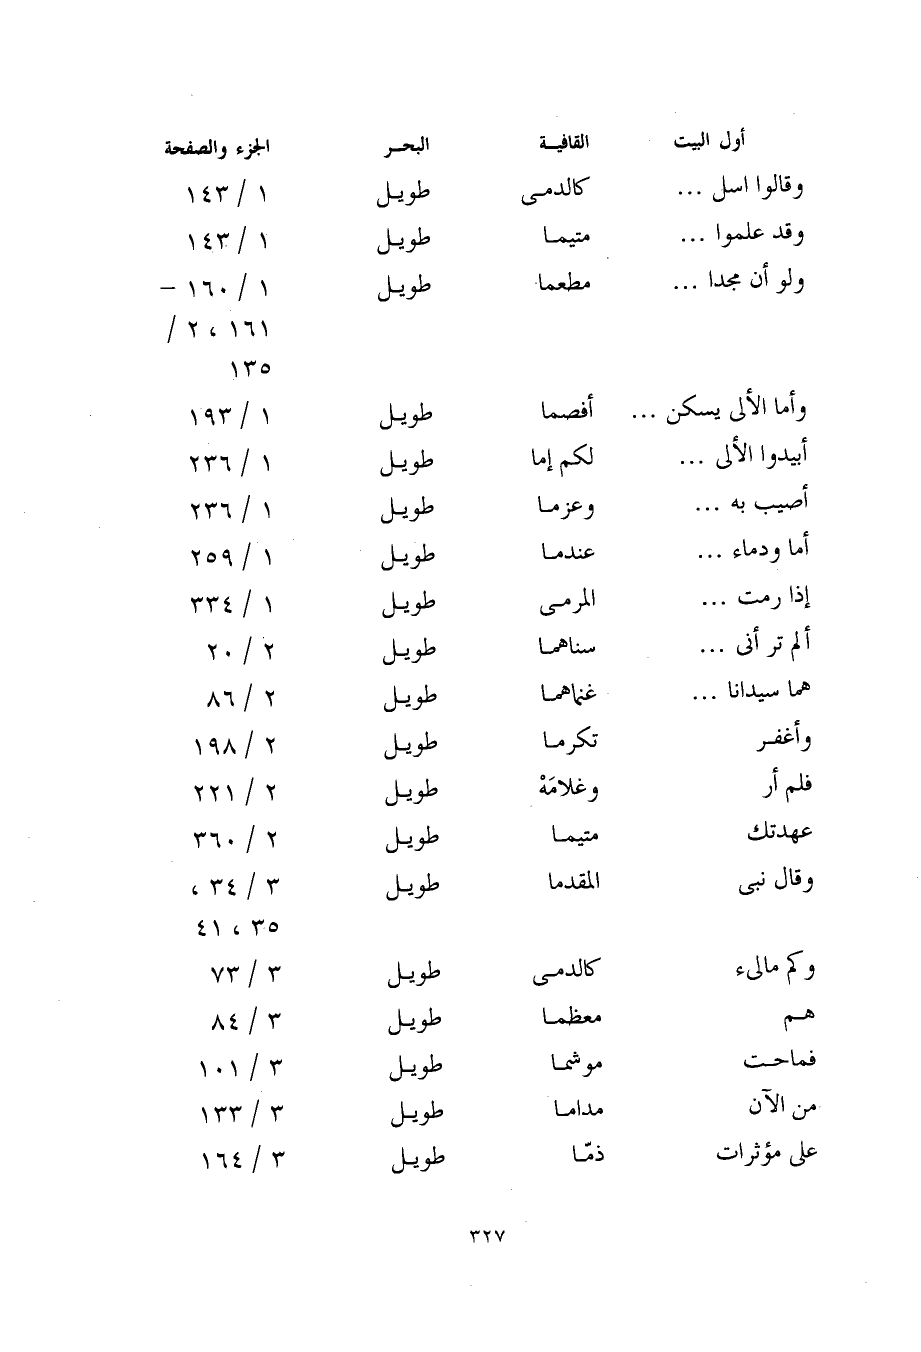 أول البيت القافيـة البحـر الجزء والصفحة
وقالوا اسل ... كالدمـى طويـل ١ / ١٤٣
وقد علموا ... متيمـا طويـل ١ / ١٤٣
ولو أن مجدا ... مطعما طويـل ١ / ١٦٠ –
١٦١ ، ٢ /
١٣٥
وأما الألى يسكن ... أفصما طويـل ١ / ١٩٣
أبيدوا الألى ... لكم إما طويـل ١ / ٢٣٦
أصيب به ... وعزمـا طويـل ١ / ٢٣٦
أما ودماء ... عندمـا طويـل ١ / ٢٥٩
إذا رمت ... المرمـى طويـل ١ / ٣٣٤
ألم تر أنى ... سناهمـا طويـل ٢ / ٢٠
هما سيدانا ... غناهمـا طويـل ٢ / ٨٦
وأغفـر تكرمـا طويـل ٢ / ١٩٨
فلم أر وغلامَهْ طويـل ٢ / ٢٢١
عهدتك متيمـا طويـل ٢ / ٣٦٠
وقال نبى المقدما طويـل ٣ / ٣٤ ،
٣٥ ، ٤١
وكم مالىء كالدمـى طويـل ٣ / ٧٣
هـم معظمـا طويـل ٣ / ٨٤
فماحـت موشمـا طويـل ٣ / ١٠١
من الآن مدامـا طويـل ٣ / ١٣٣
على مؤثرات ذمّـا طويـل ٣ / ١٦٤
٣٢٧